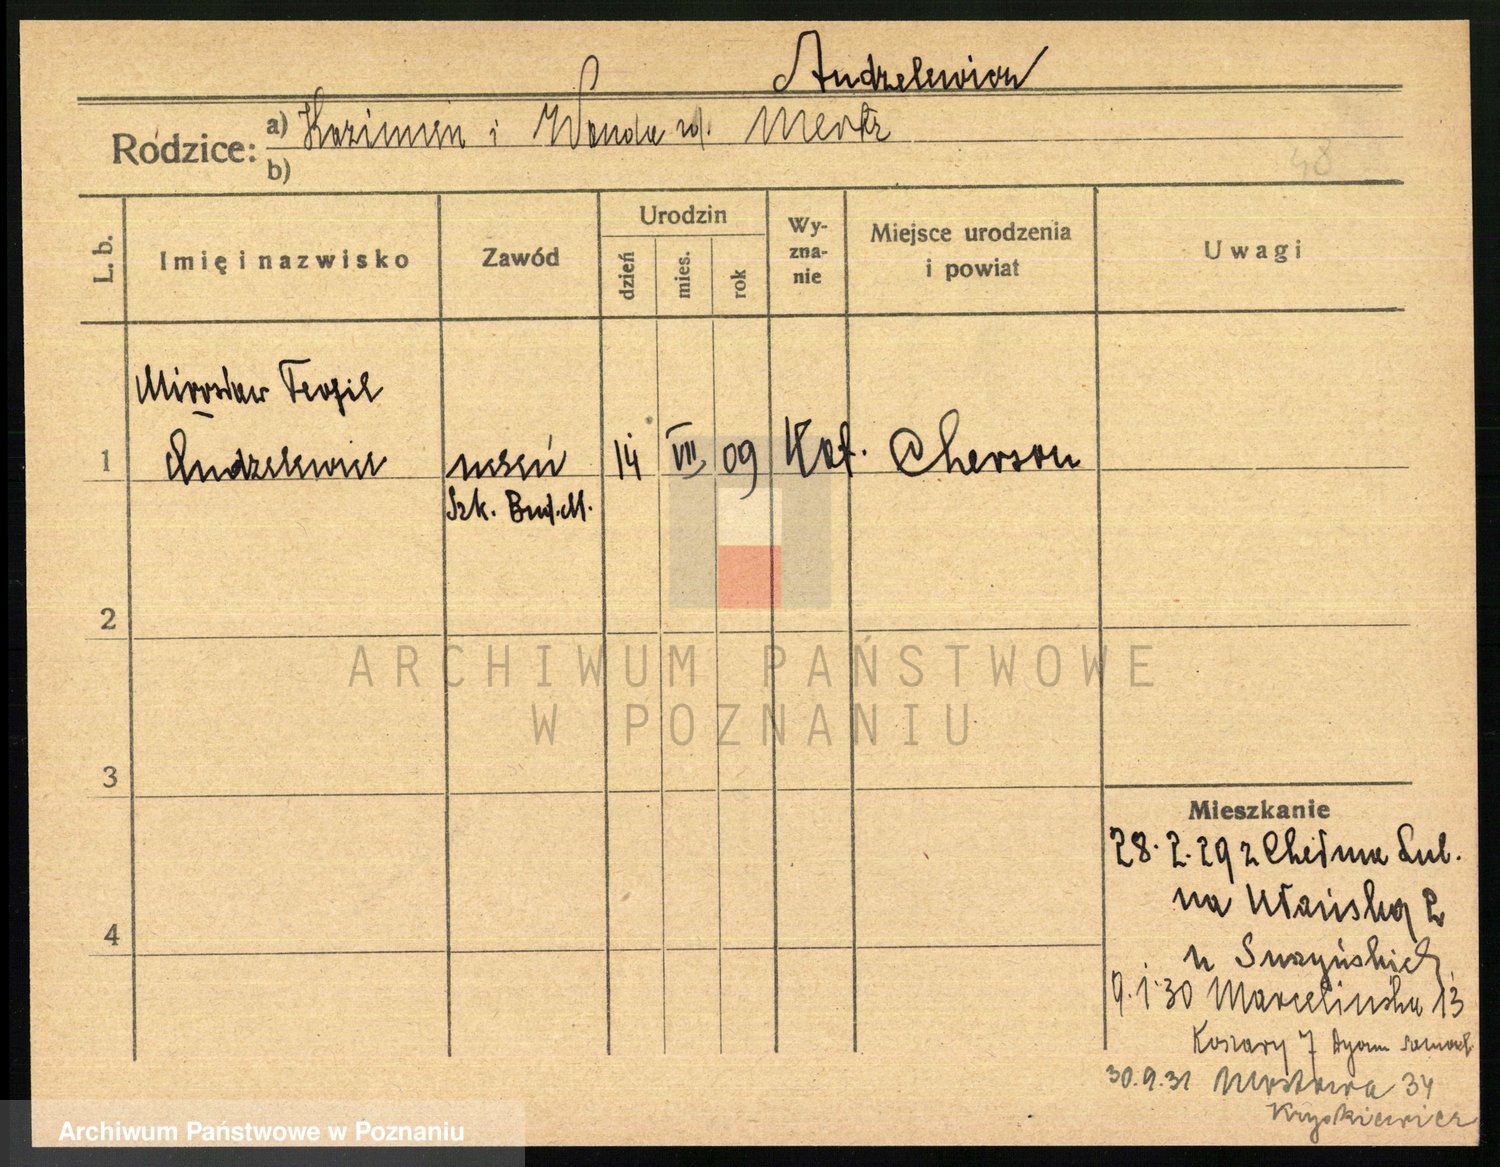 Andzelewicz
Rodzice: a) Kazimierz i Wanda zd. Mertz
b)
48
L. b. Imię i nazwisko Zawód Urodzin dzień mies. rok Wy-zna-nie Miejsce urodzenia i powiat Uwagi
Mirosław Teofil
1 Andzelewicz uczeń 14 VII 09 Kat. Cherson
Szk. Bud. M.
2
ARCHIWUM PAŃSTWOWE
W POZNANIU
3
Mieszkanie
28. 2. 29 z Chełma Lub.
na Ułańską 2
4
u
9. 1. 30 Marcelińska 13
Koszary 7
30. 9. 31 Mostowa 34
Krzyżkiewicz
Archiwum Państwowe w Poznaniu